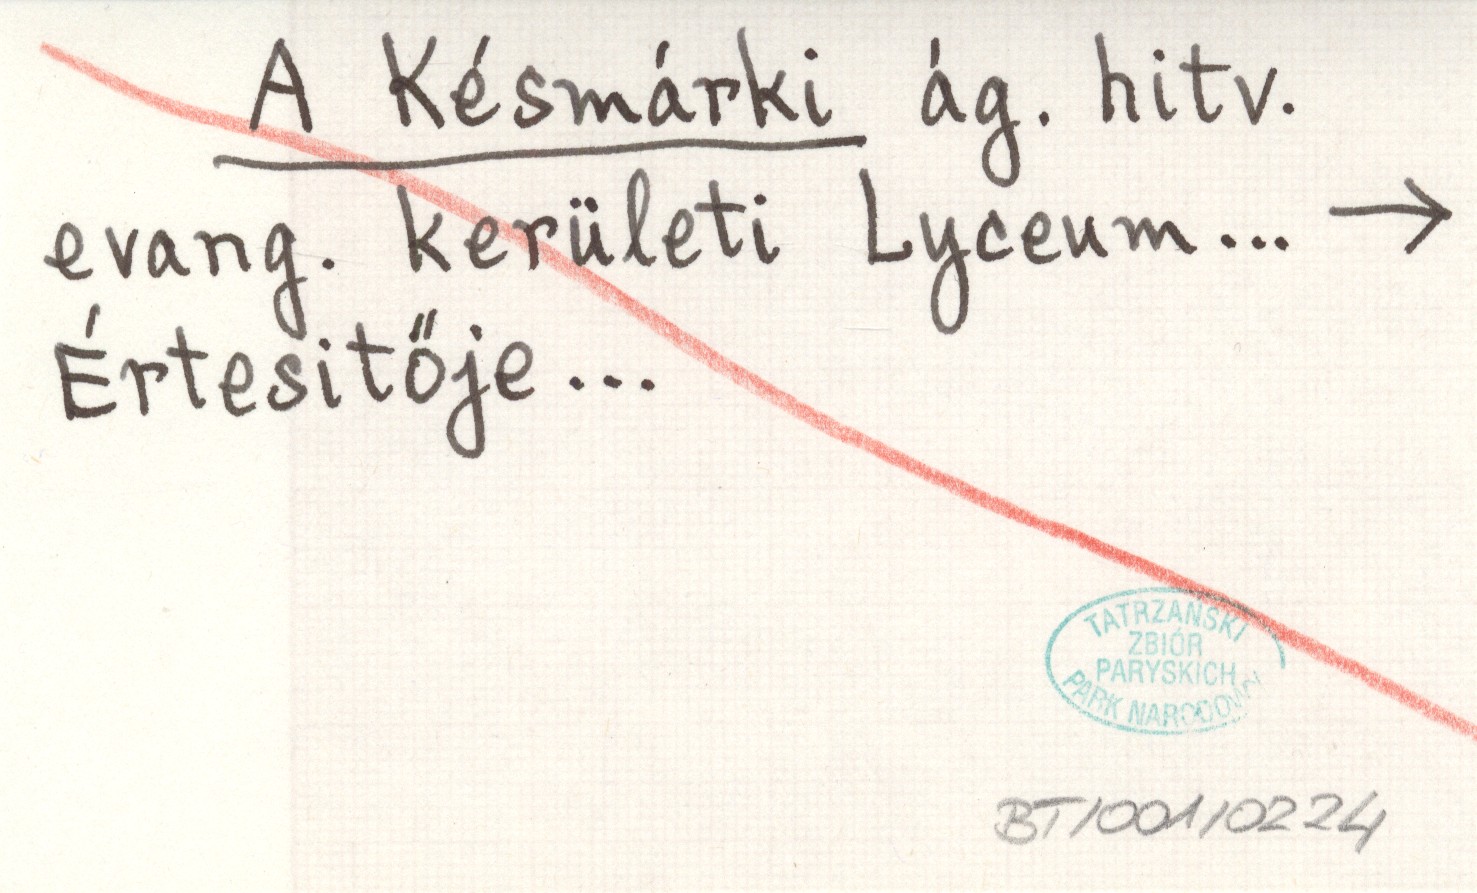 A Késmárki ág. hitv.
evang. kerületi Lyceum... →
Értesitője...
TATRZAŃSKI
ZBIÓR
PARYSKICH
PARK NARODOWY
BT/001/0224